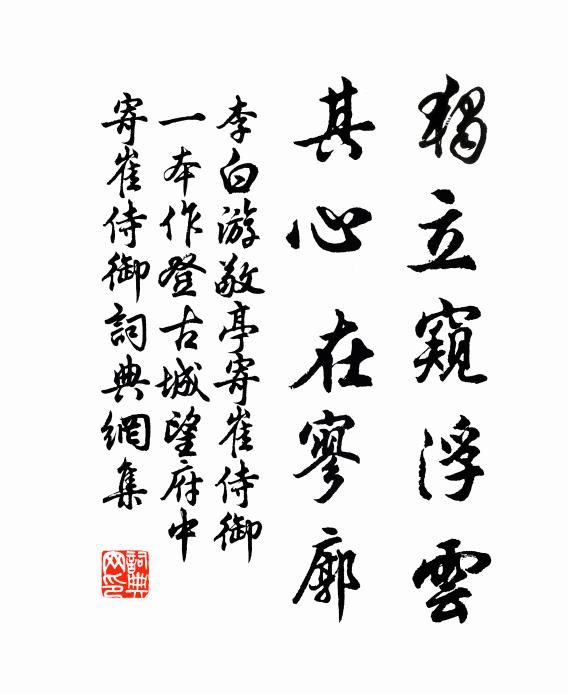 獨立窺浮雲
其心在寥廓
李白游敬亭寄崔侍御
一本作登古城望府中
寄崔侍御詞典網集
詞典
网印